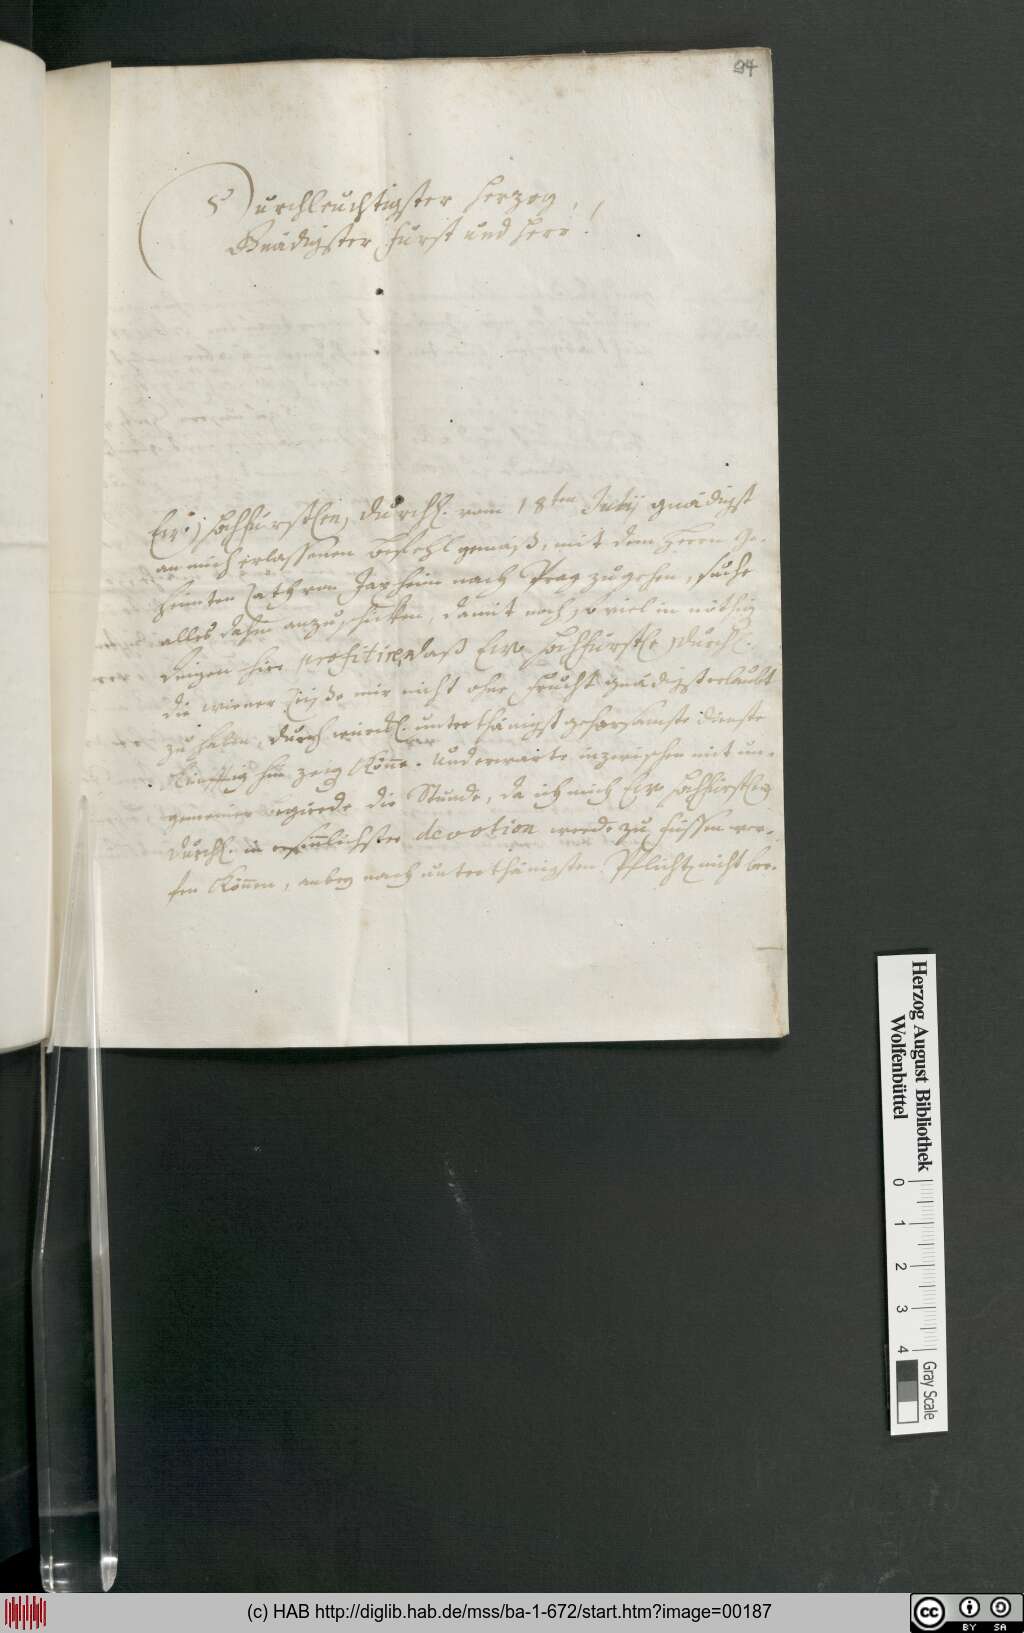 94
Durchleuchtigster Herzog,
Gnädigster Fürst und Herr!
Ew. Hochfürstlen Durchl. vom 18ten Julij gnädigst
an mich erlassenen befehl gemäß, mit dem Herrn Ge-
heimten Rath von Jaxheim nach Prag zu gehen, suche
alles dahin anzuschicken, damit noch so viel in nöthig
dingen hier profitire, daß Ew. Hochfürstl. Durchl.
die wiener Reyße mir nicht ohne Frucht gnädigst erlaubt
zu haben, durch unterthänigst gehorsamste dienste
künfftig hin zeigen könne. Und erwarte inzwischen mit un-
gemeiner begierde die Stunde, da ich mich Ew. Hochfürstlen
Durchl. in ersinnlichster devotion werde zu füssen wer-
fen können, anbey nach unterthänigsten Pflicht nicht ber-
Herzog August Bibliothek
Wolfenbüttel
0 1 2 3 4
Gray Scale
(c) HAB http://diglib.hab.de/mss/ba-1-672/start.htm?image=00187
cc BY SA